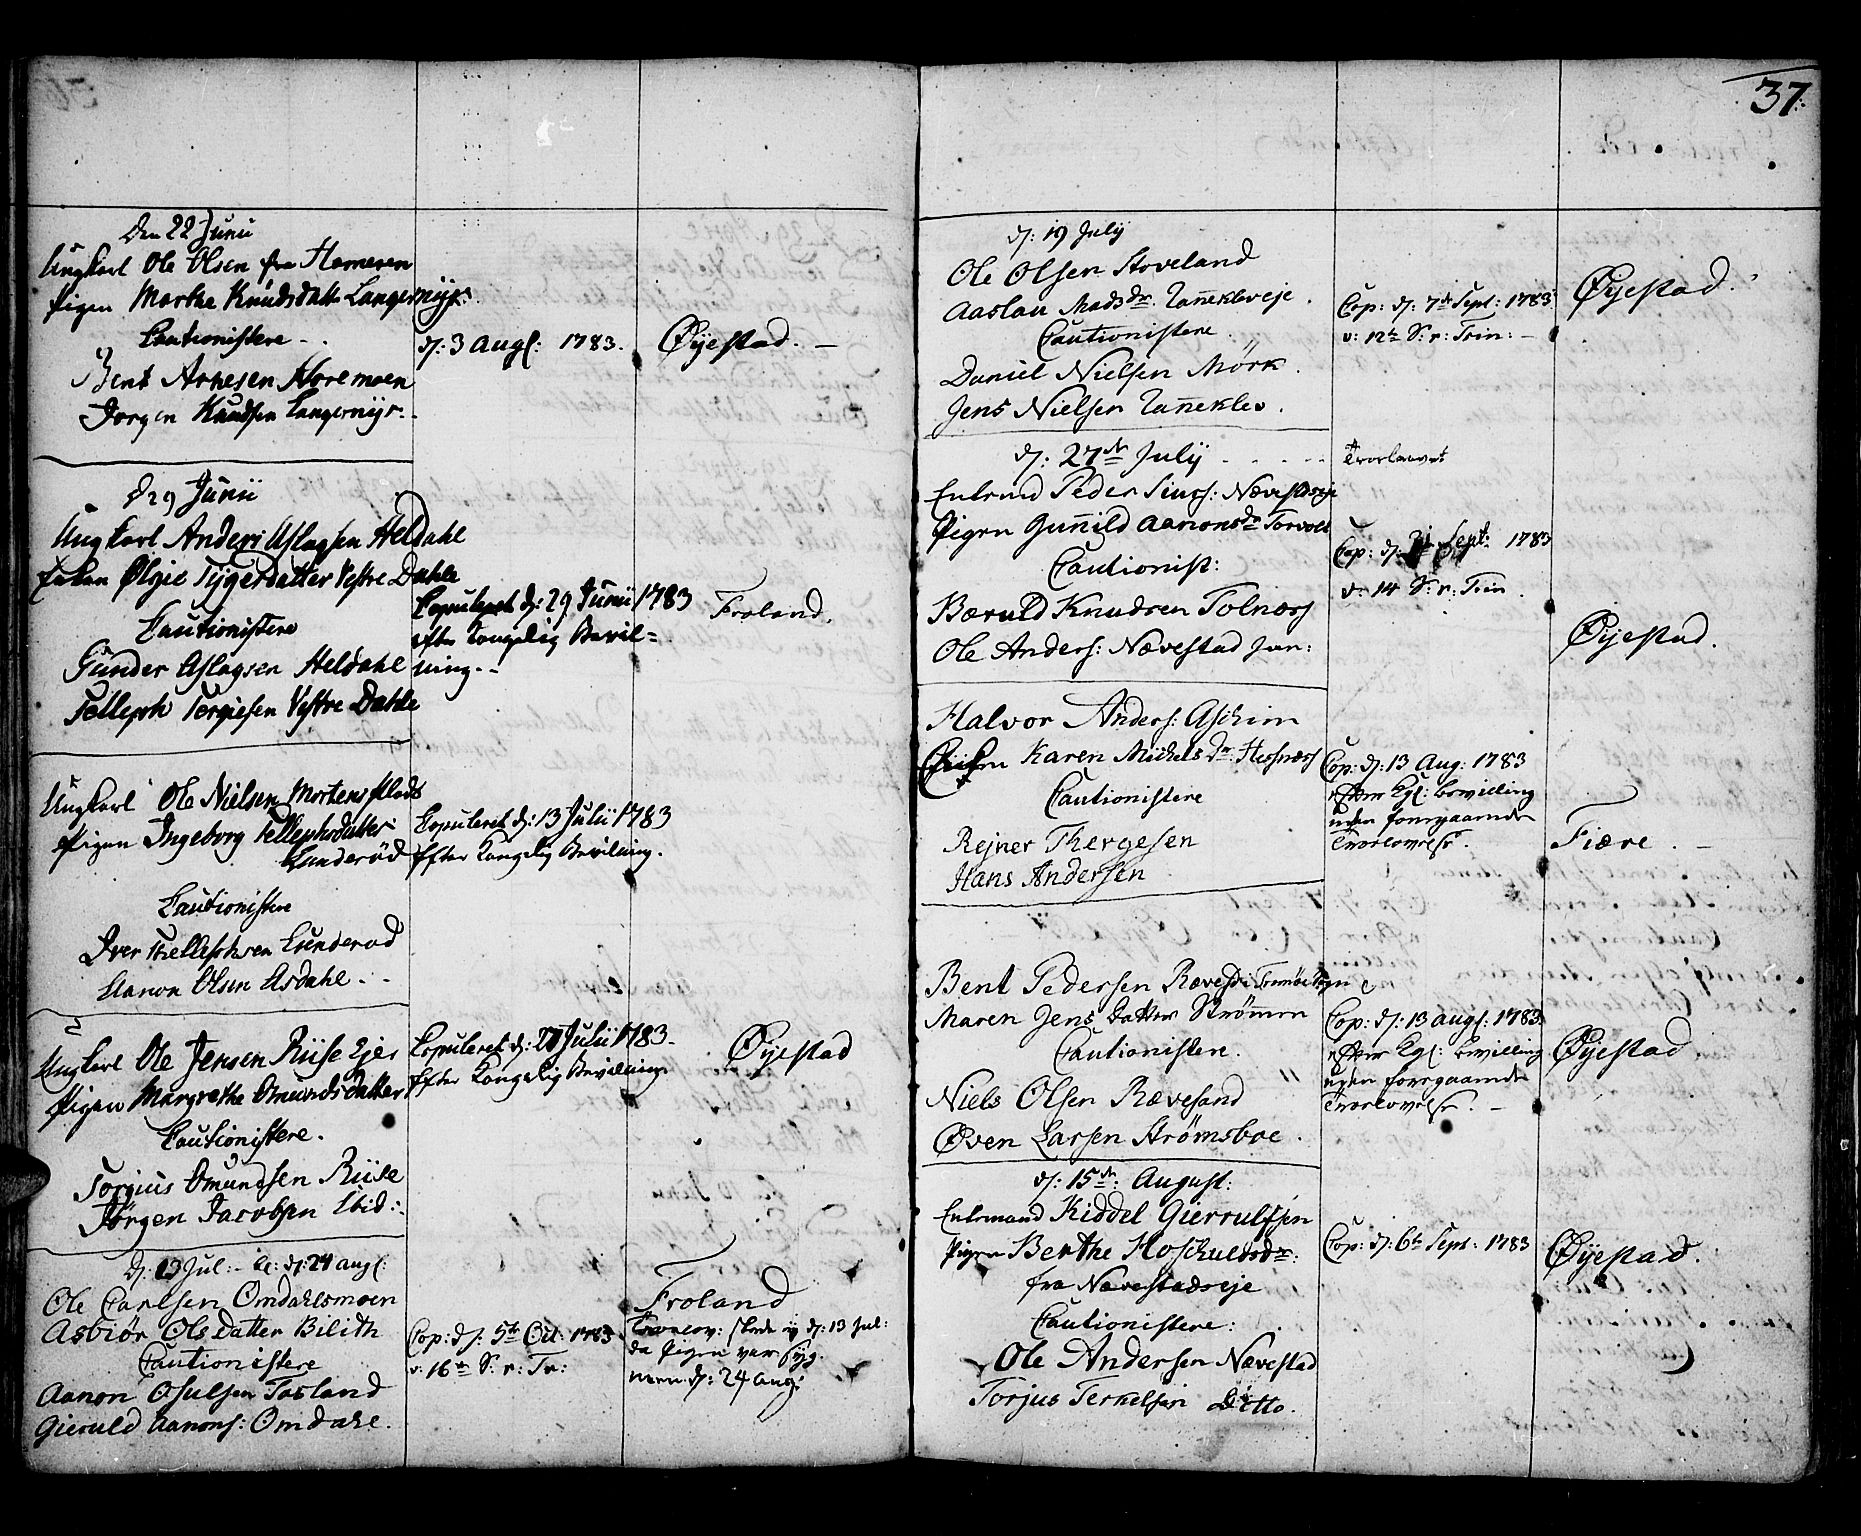 37.
Den 22 Junii
Ungkarl Ole Olsen fra Hameren
Pigen Marthe Knudsdatt: Langemyhr.
Cautionistere
Bent Arnesen
Jørgen Knudsen Langemyr.
d: 3 Augs: 1783.
Øyestad.
d 29 Junii
Ungkarl Anders Aslagsen Heldahl
Enken Ølgie Tygesdatter Vestre Dahle
Cautionistere
Gunder Aslagsen Heldahl
Telleph Tergiesen Vestre Dahle
Copuleret d: 29 Junii 1783
efter Kongelig Bevil=
ning.
Froland.
Ungkarl Ole Nielsen
Pigen Ingeborg Tellephsdatter
Lunderød
Cautionistere
Iver Thellephsen Lunderød
Aanon Olsen Asdahl.
Copuleret d: 13 Julii 1783
Efter Kongelig Bevilning.
Ungkarl Ole Jensen Riise Ejer
Pigen Margrethe Omunds datter
Cautionistere.
Torgius Omundsen Riise
Jørgen Jacobsen Ibid:
Copuleret d: 27 Julii 1783.
Efter Kongelig Bevilning.
Øyestad
d: 13 Jul: d: 24 augs:
Ole Carlsen Omdahlsmoen
Asbiør Olsdatter Bilith
Cautionistere
Aanon Osulsen Tasland
Gieruld Aanons: Omdahl.
Cop: d: 5te Oct: 1783
v: 16de S: p: Tr:
Froland
Trolov: skede ey d: 13 Jul:
da Pigen var syg.
men d: 24 Aug:
d: 19 July
Ole Olsen Stoveland
Aaslau Madsdr.
Cautionistere
Daniel Nielsen Mörk.
Jens Nielsen
Cop: d: 7de Sept: 1783
v: 12te S: p: Trin:
Øyestad.
d: 27de July
Trolovet
Enkemand Peder Nævestadeje
Pigen Guñild Aanonsdr
Cautionist:
Bæruld Knudsen Tolnæs
Ole Anders: Nævestad jun:
Cop: d: Sept: 1783
v: 14 S: p: Trin.
Øyestad.
Halvor Anders:
Karen Michels dr. Hesnæs
Cautionistere
Rejner Thergesen
Hans Andersen
Cop: d: 13 Aug: 1783
efter Kgl: bevilling
uden foregaaende
Trolovelse.
Fiære.
Bent Pedersen
Maren Jens Datter Strømmen
Cautionisten.
Niels Olsen Rævesand
Øven Larsen Strømsboe.
Cop: d: 13 augs: 1783
efter Kgl: bevilling
uden foregaaende
Trolovelse.
Øyestad
d: 15de: August:
Enkemand Kiddel Gierrulfsen
Pigen Berthe Hoskuldsdr:
fra Nævestadseje
Cautionistere:
Ole Andersen Nævestad
Torjus Terkelsen Ditto.
Cop: d: 6te Sept: 1783
Øyestad.